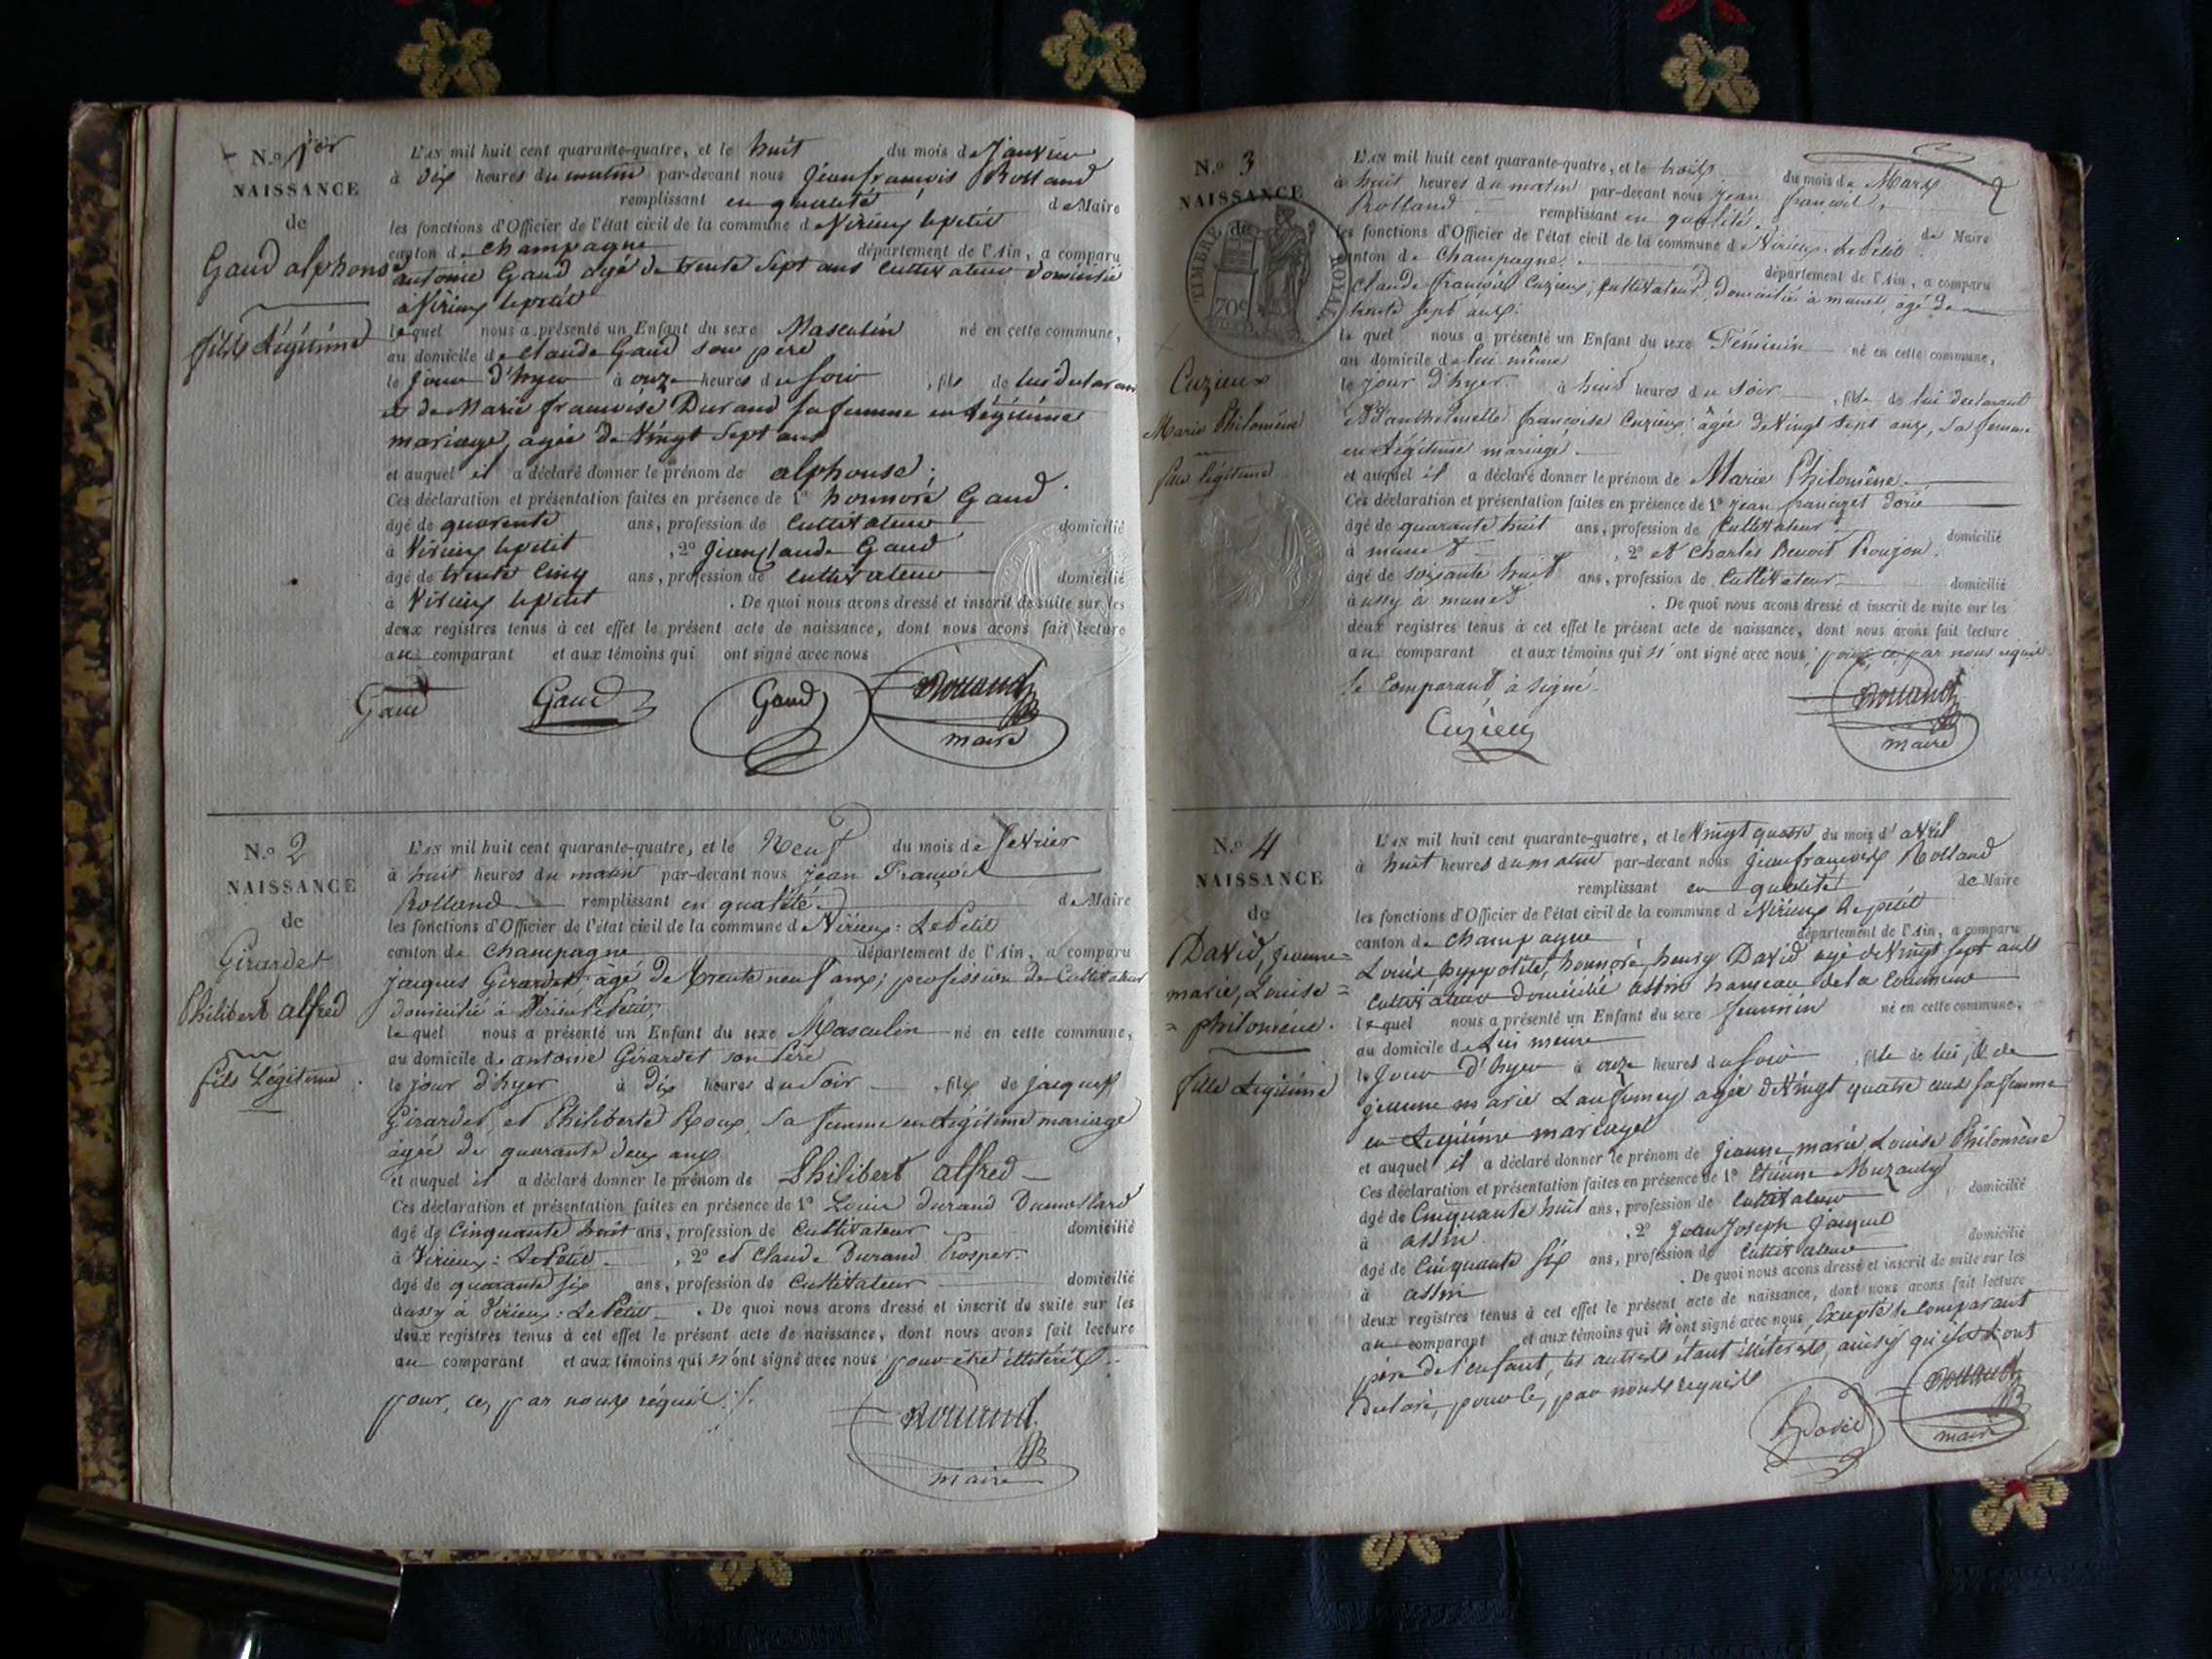 N.º 1er
NAISSANCE
de
Gaud alphonse
fils Légitime
L'AN mil huit cent quarante-quatre, et le huit du mois de Janvier
à dix heures du matin par-devant nous Jean françois Rolland
remplissant en qualité de Maire
les fonctions d'Officier de l'état civil de la commune d Virieux le petit
canton de Champagne département de l'Ain, a comparu
antoine Gaud agé de trente Sept ans Cultivateur domicilié
à Virieux le petit
lequel nous a présenté un Enfant du sexe Masculin né en cette commune,
au domicile de Claude Gaud son père
le jour d'hyer à onze heures du soir, fils de lui déclarant
et de Marie françoise Durand sa femme en Légitime
mariage, agée de Vingt Sept ans
et auquel il a déclaré donner le prénom de alphonse;
Ces déclaration et présentation faites en présence de 1º honnoré Gaud
âgé de quarente ans, profession de Cultivateur domicilié
à Virieux le petit, 2º Jean Claude Gaud
âgé de trente Cinq ans, profession de Cultivateur domicilié
à Virieux le petit. De quoi nous avons dressé et inscrit de suite sur les
deux registres tenus à cet effet le présent acte de naissance, dont nous avons fait lecture
au comparant et aux témoins qui ont signé avec nous
Gaud Gaud Gaud Rolland
maire
N.º 2
NAISSANCE
de
Girardet
Philibert alfred
fils Légitime
L'AN mil huit cent quarante-quatre, et le Neuf du mois de fevrier
à huit heures du matin par-devant nous jean François
Rolland remplissant en qualité de Maire
les fonctions d'Officier de l'état civil de la commune de Virieux: Le Petit
canton de Champagne département de l'Ain, a comparu
jacques Girardet âgé de trente neuf ans; profession de Cultivateur
domicilié à Virieu le Petit;
lequel nous a présenté un Enfant du sexe Masculin né en cette commune,
au domicile de antoine Girardet son Père
le jour d'hyer à dix heures du Soir, fils de jacques
Girardet, et Philiberte Roux, sa femme en Légitime mariage
âgée de quarante deux ans
et auquel il a déclaré donner le prénom de Philibert alfred
Ces déclaration et présentation faites en présence de 1º Louis durand Dumollard
âgé de Cinquante huit ans, profession de Cultivateur domicilié
à Virieux: Le Petit, 2º et Claude Durand Prosper
âgé de quarante six ans, profession de Cultivateur domicilié
aussy à Virieux: Le Petit. De quoi nous avons dressé et inscrit de suite sur les
deux registres tenus à cet effet le présent acte de naissance, dont nous avons fait lecture
au comparant et aux témoins qui n'ont signé avec nous pour être illitérés
pour, ce, par nous réquis ./.
Rolland
maire
N.º 3
NAISSANCE
de
TIMBRE ROYAL
70c
Cuzieux
Marie Philomène
légitime
L'AN mil huit cent quarante-quatre, et le du mois de Mars
à huit heures du matin par-devant nous Jean françois,
Rolland remplissant en qualité de Maire
les fonctions d'Officier de l'état civil de la commune de Virieux: Le Petit
canton de Champagne département de l'Ain, a comparu
Claude françois Cuzieux, Cultivateur, domicilié à âgé de
trente sept ans.
lequel nous a présenté un Enfant du sexe Féminin né en cette commune,
au domicile de lui même
le jour d'hyer à huit heures du soir, fille de lui déclarant
Et d'anthelmette françoise Cuzieux; âgée de Vingt Sept ans, sa femme
en Légitime mariage.
et auquel il a déclaré donner le prénom de Marie Philomène.
Ces déclaration et présentation faites en présence de 1º jean
âgé de quarante huit ans, profession de Cultivateur domicilié
à, 2º et Charles Benoit Roujon
âgé de soixante huit ans, profession de Cultivateur domicilié
aussy à. De quoi nous avons dressé et inscrit de suite sur les
deux registres tenus à cet effet le présent acte de naissance, dont nous avons fait lecture
au comparant et aux témoins qui n'ont signé avec nous pour, ce, par nous requis
le Comparant à signé.
Cuzieux Rolland
maire
N.º 4
NAISSANCE
de
David, jeanne=
marie, Louise=
=philomène.
fille Légitime
L'AN mil huit cent quarante-quatre, et le Vingt quatre du mois d'avril
à huit heures du matin par-devant nous Jean françois Rolland
remplissant en qualité de Maire
les fonctions d'Officier de l'état civil de la commune d Virieux le petit
canton de Champagne département de l'Ain, a comparu
Louis hyppolite, honnoré, henry David agé de Vingt sept ans
Cultivateur domicilié assin hameau de la Commune
lequel nous a présenté un Enfant du sexe feminin né en cette commune,
au domicile de Lui meme
le jour d'hyer à onze heures du soir, fille de lui, & de
jeanne marie agée de Vingt quatre ans sa femme
en Légitime mariage
et auquel il a déclaré donner le prénom de jeanne, marie Louise Philomène
Ces déclaration et présentation faites en présence de 1º
âgé de Cinquante huit ans, profession de Cultivateur domicilié
à assin, 2º jean Joseph jacquet
âgé de Cinquante six ans, profession de Cultivateur domicilié
à assin. De quoi nous avons dressé et inscrit de suite sur les
deux registres tenus à cet effet le présent acte de naissance, dont nous avons fait lecture
au comparant et aux témoins qui n'ont signé avec nous Excepté le Comparant
père de l'enfant, les autres étant illiterés, ainsy qu'ils l'ont
déclaré, pour ce, par nous requis
David Rolland
maire